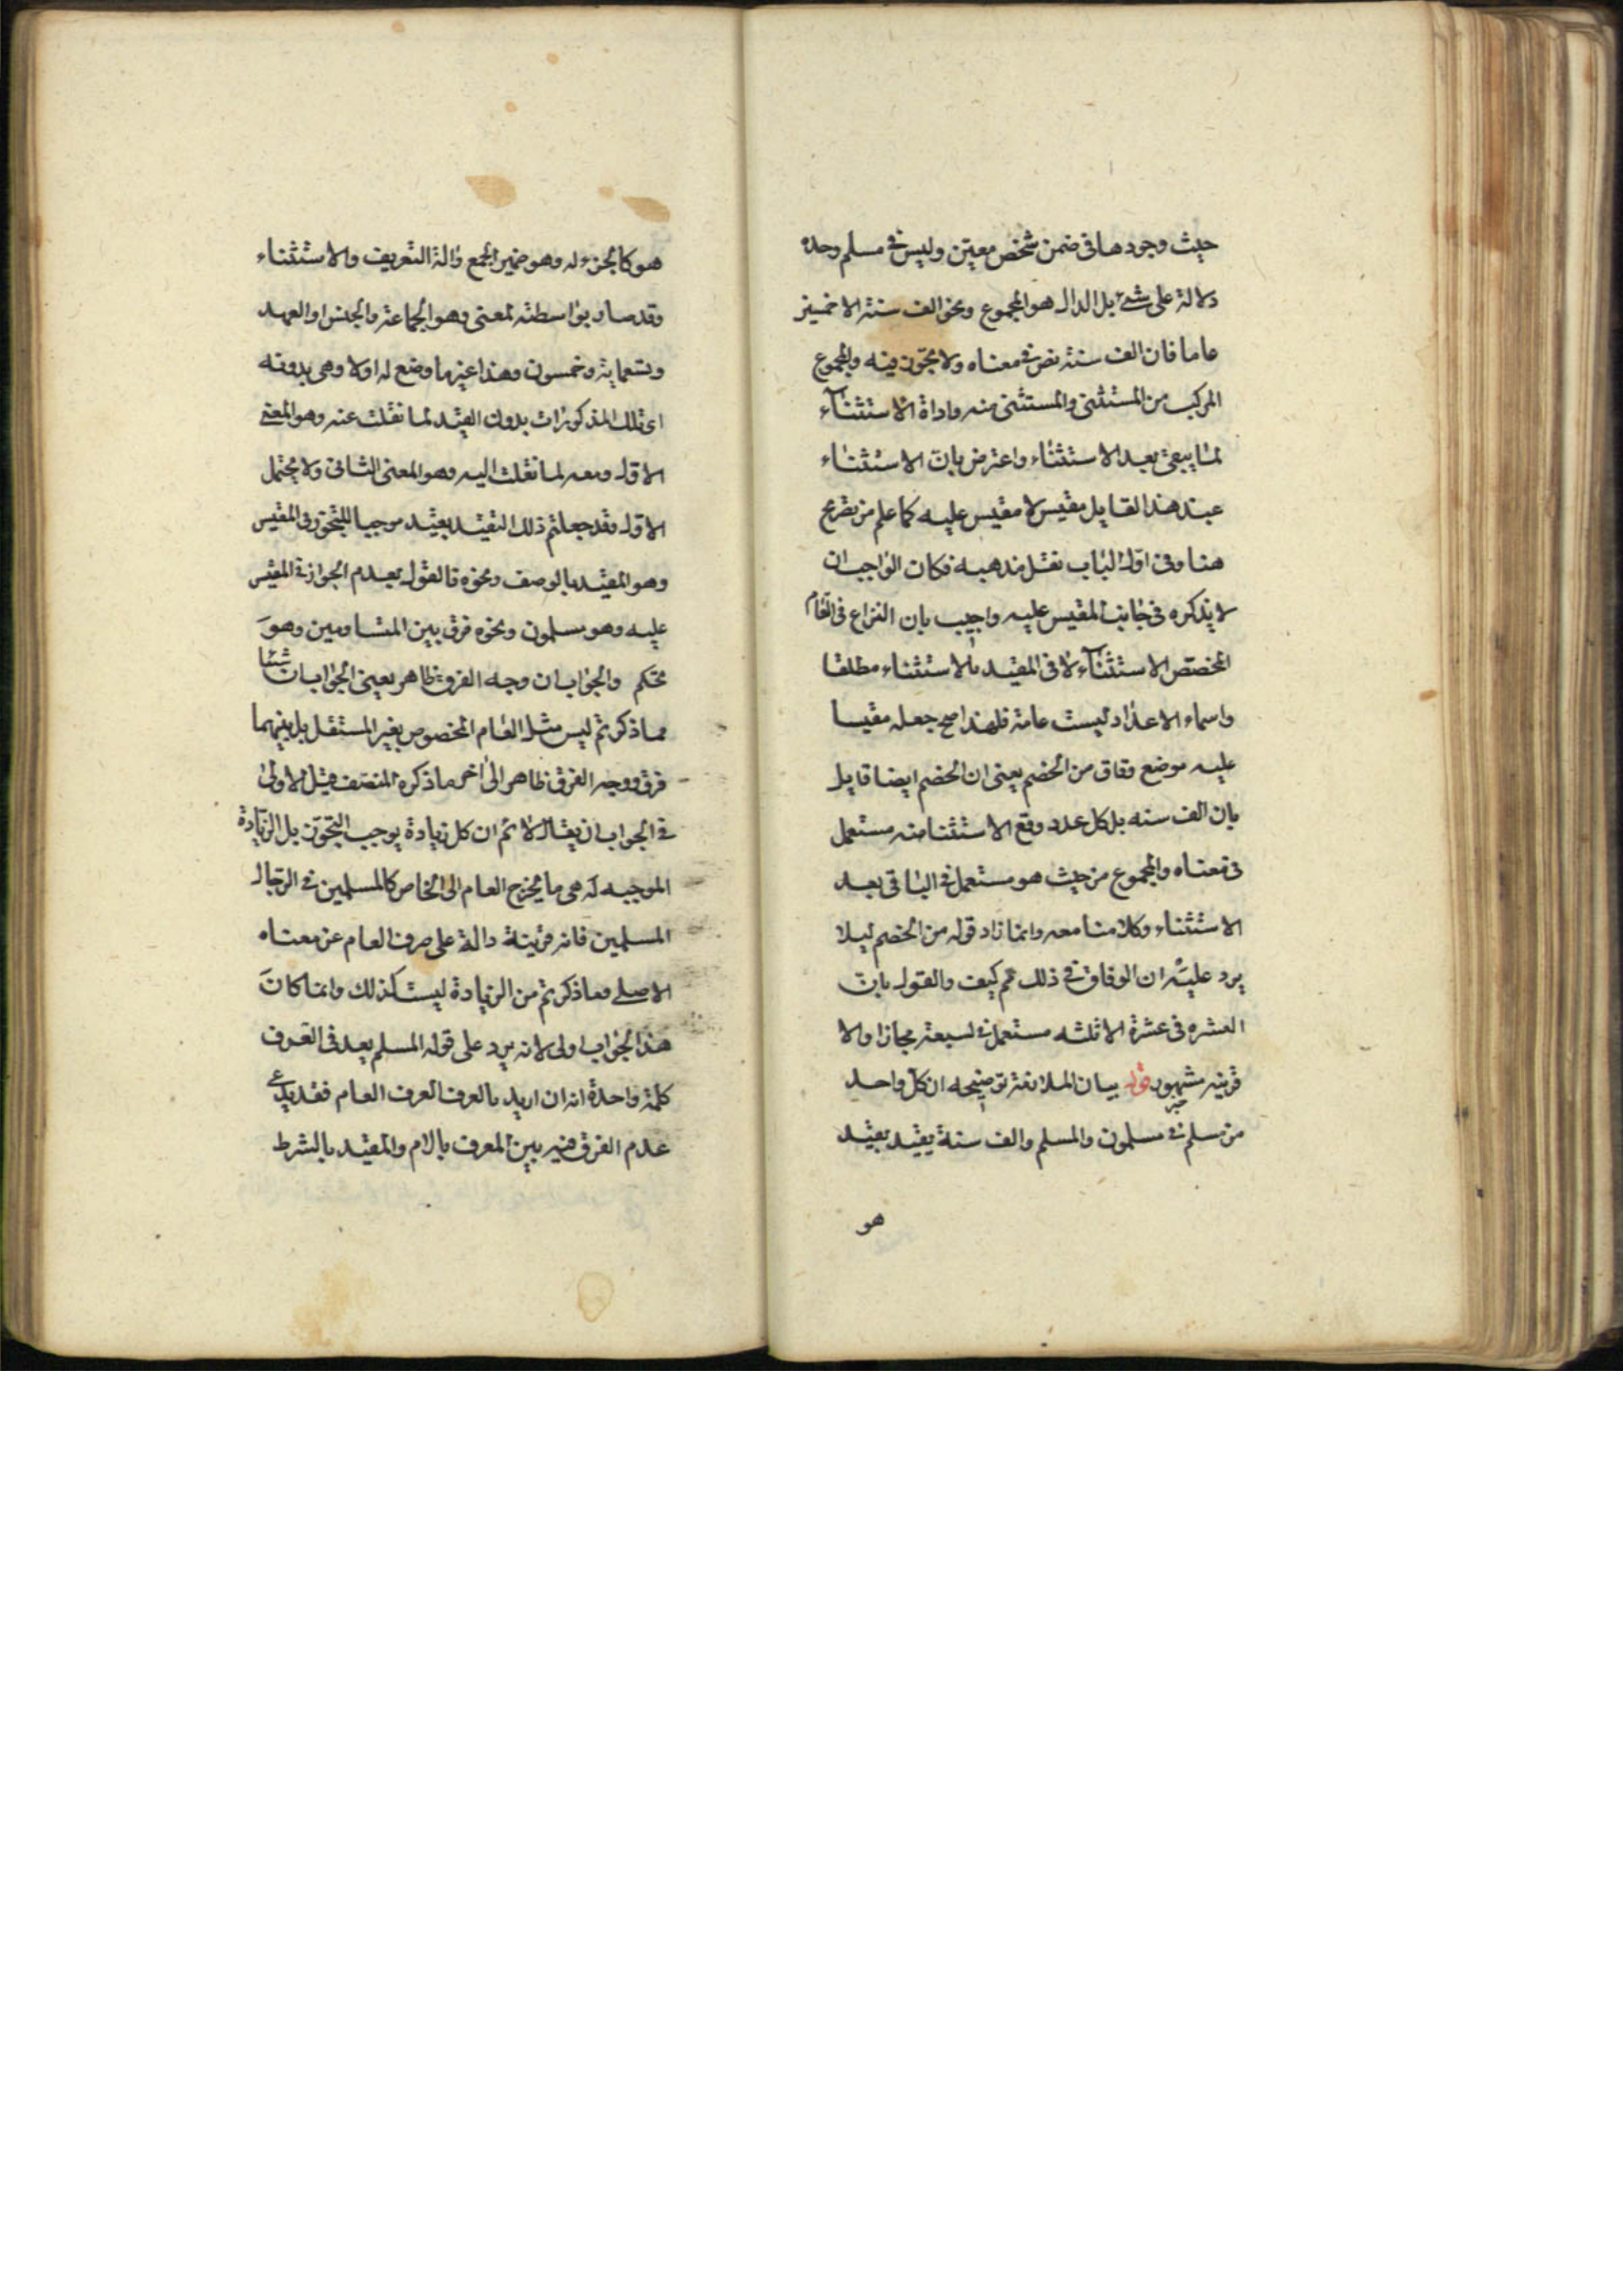 حيث وجودها فى ضمن شخص معين وليس فى مسلم وحده
دلالة على شئ بل الدال هو المجموع ونحو الف سنة الا خمسين
عاما فان الف سنة نص فى معناه ولا تجوز فيه والمجموع
المركب من المستثنى والمستثنى منه واداة الاستثناء
لما يبقى بعد الاستثناء واعترض بان الاستثناء
عند هذا القايل مقيس لا مقيس عليه كما علم من تصريح
هنا وفى اول الباب نقل مذهبه فكان الواجب ان
لا يذكره فى جانب المقيس عليه واجيب بان النزاع فى العام
المخصص الاستثناء لا فى المقيد بالاستثناء مطلقا
واسماء الاعداد ليست عامة فلهذا صح جعله مقيسا
عليه موضع وفاق من الخصم يعنى ان الخصم ايضا قايل
بان الف سنه بل كل عدد وقع الاستثنا منه مستعمل
فى معناه والمجموع من حيث هو مستعمل فى الباقى بعد
الاستثناء وكلامنا معه وانما زاد قوله من الخصم ليلا
يرد عليه ان الوفاق فى ذلك مم كيف والقول بان
العشره فى عشرة الا ثلثه مستعمل فى سبعة مجازا والا
قرينه مشهور قوله بيان الملازمة توضيحه ان كل واحد
من مسلم فى مسلمون والمسلم والف سنة يقيد بقيد
هو
هو كالجزء له وهو ضمير الجمع والة التعريف والاستثناء
وقد صار بواسطته لمعنى وهو الجماعة والجنس او العهد
وتسعماية وخمسون وهذا غير ما وضع له اولا وهى بدونه
اى تلك المذكورات بدون القيد لما نقلت عنه وهو المعنى
الاول ومعه لما نقلت اليه وهو المعنى الثانى ولا يحتمل
الاول وقد جعلتم ذلك التقييد بقيد موجبا للتجوز فى المقيس
وهو المقيد بالوصف ونحوه فالقول بعدم الجواز فى المقيس
عليه وهو مسلمون ونحوه فرق بين المتساويين وهو
تحكم والجواب ان وجه الفرق ظاهر يعنى الجواب ان شيئا
مما ذكرتم ليس مثل العام المخصوص بغير المستقل بل بينهما
فرق ووجه الفرق ظاهر الى اخر ما ذكره المصنف قيل الاولى
فى الجواب ان يقال لا نم ان كل زيادة يوجب التجوز بل الزيادة
الموجبه له هى ما يخرج العام الى الخاص كالمسلمين فى الرجال
المسلمين فانه قرينة دالة على صرف العام عن معناه
الاصلى وما ذكرتم من الزيادة ليست كذلك وانما كان
هذا الجواب اولى لانه يرد على قوله المسلم يعد فى العرف
كلمة واحدة انه ان اريد بالعرف العرف العام فقد يدعى
عدم الفرق فيه بين المعرف بالام والمقيد بالشرط